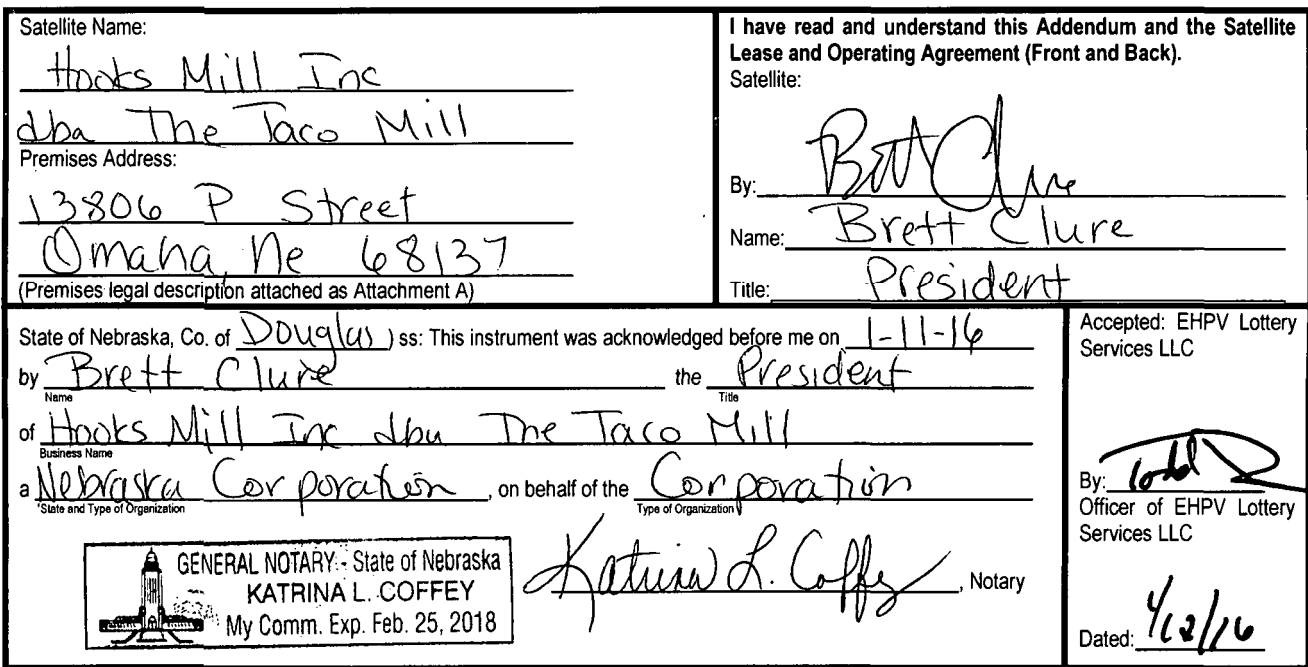 Satellite Name:
Hooks Mill Inc
dba The Taco Mill
Premises Address:
13806 P Street
Omaha, Ne 68137
(Premises legal description attached as Attachment A)
I have read and understand this Addendum and the Satellite
Lease and Operating Agreement (Front and Back).
Satellite:
By: Brett Clure
Name: Brett Clure
Title: President
State of Nebraska, Co. of Douglas ) ss: This instrument was acknowledged before me on 1-11-16
by Brett Clure the President
Name Title
of Hooks Mill Inc dba The Taco Mill
Business Name
a Nebraska Corporation, on behalf of the Corporation
State and Type of Organization Type of Organization
GENERAL NOTARY - State of Nebraska
KATRINA L. COFFEY
My Comm. Exp. Feb. 25, 2018
Katrina L. Coffey, Notary
Accepted: EHPV Lottery
Services LLC
By: Todd
Officer of EHPV Lottery
Services LLC
Dated: 1/12/16